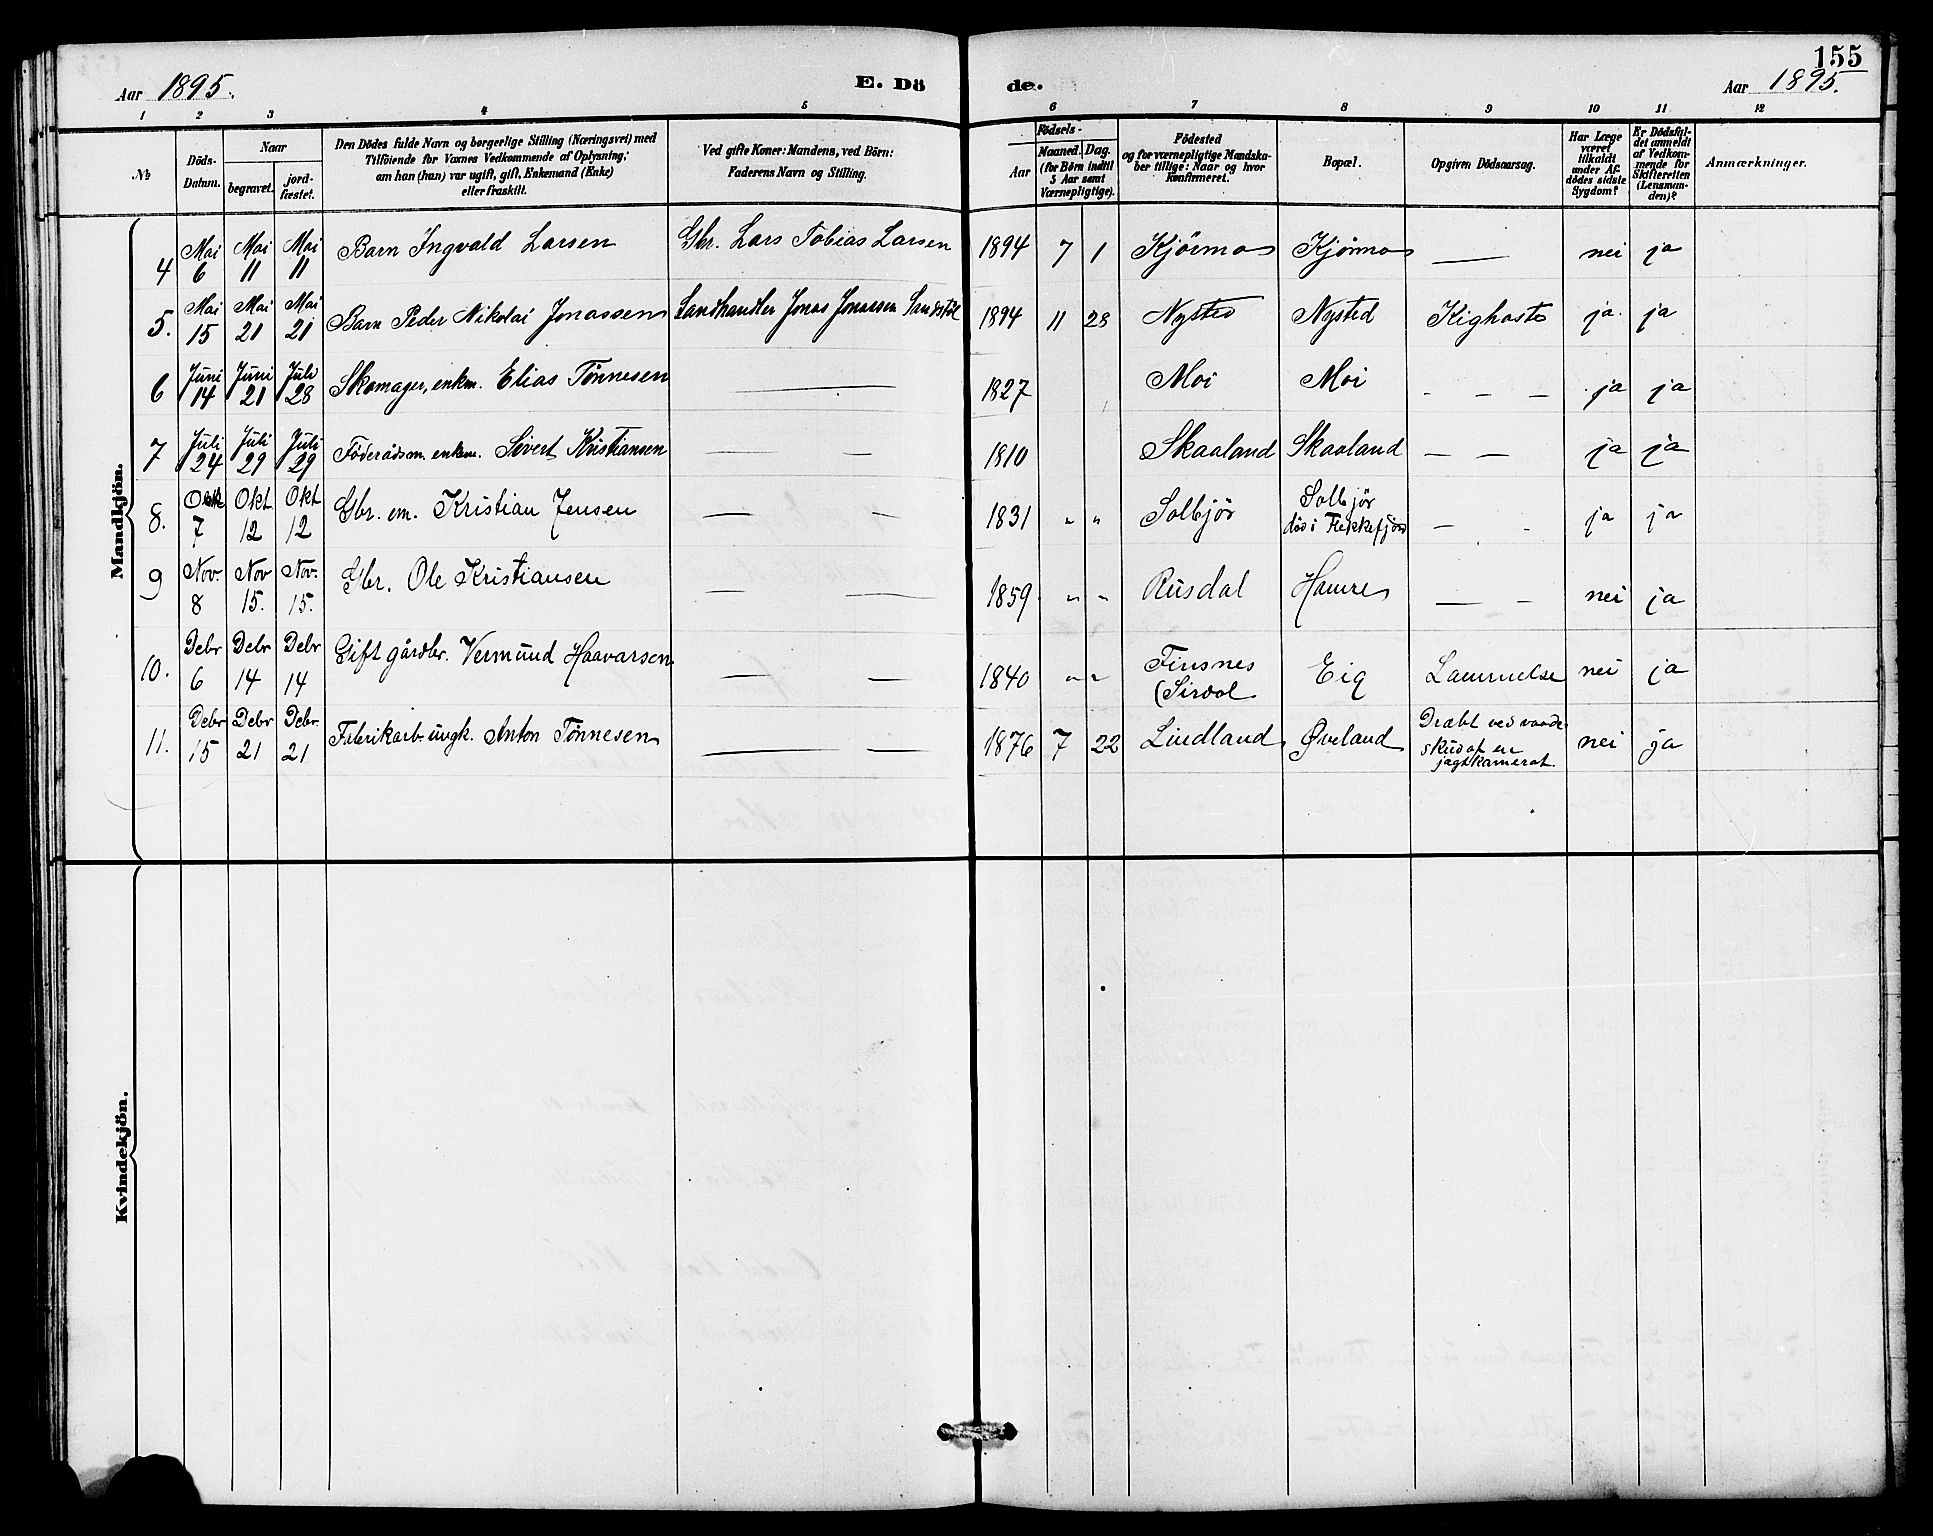 155
Aar 1895. E. Dö de. Aar 1895.
1 2 3 4 5 6 7 8 9 10 11 12
№
Döds-
Datum.
Naar
begravet.
jord-
fæstet.
Den Dödes fulde Navn og borgerlige Stilling (Næringsvei) med
Tilföiende for Voxnes Vedkommende af Oplysning,
om han (hun) var ugift, gift, Enkemand (Enke)
eller fraskilt.
Ved gifte Koner: Mandens, ved Börn:
Faderens Navn og Stilling.
Födsels-
Aar
Maaned. Dag.
(for Börn indtil
5 Aar samt
Værnepligtige).
Födested
og for værnepligtige Mandska-
ber tillige: Naar og hvor
konfirmeret.
Bopæl.
Opgiven Dödsaarsag.
Har Læge
været
tilkaldt
under Af-
dödes sidste
Sygdom?
Er Dödsfal-
det anmeldt
af Vedkom-
mende for
Skifteretten
(Lensman-
den)?
Anmærkninger.
Mandkjön.
4 Mai 6 Mai 11 Mai 11 Barn Ingvald Larsen Gbr. Lars Tobias Larsen 1894 7 1 Kjörmo Kjörmo — nei ja
5. Mai 15 Mai 21 Mai 21 Barn Peder Nikolai Jonassen Landhandler Jonas Jonassen 1894 11 28 Nysted Nysted Kighoste ja. ja
6 Juni 14 Juni 21 Juli 28 Skomager, enkm. Elias Tönnesen — 1827 Moi Moi - — — ja ja
7 Juli 24 Juli 29 Juli 29 Föderådsm. enkm. Sivert Kristiansen — — 1810 Skaaland Skaaland — — ja ja
8. Okt 7 Okt 12 Okt 12 Gbr. em. Kristian Jensen — — 1831 " " Solbjör Solbjör
död i Flekkefjord — - ja ja
9 Nov. 8 Nov 15. Nov. 15. Gbr. Ole Kristiansen — — 1859 " " Rusdal Hamre — — nei ja
10. Debr 6 Debr 14 Debr 14 Gift gårdbr. Vermund Haavarsen — — 1840 " " Finsnes
(Sirdal Eig Lammelse nei ja
11. Debr 15 Debr 21 Debr. 21 Fabrikarb. ungk. Anton Tönnesen — — 1876 7 22 Lindland Øveland Dræbt ved vaade-
skud af en
jagtkamerat. nei ja
Kvindekjön.